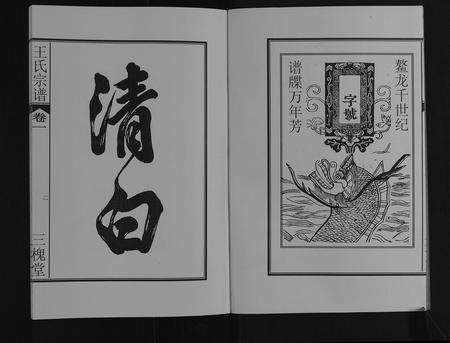 鳌龙千世纪
字號
谱牒万年芳
清白
王氏宗谱
卷一
二
三槐堂